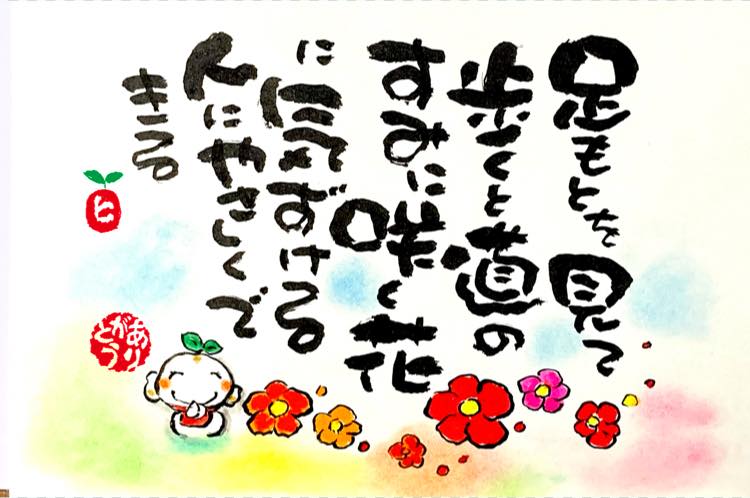 足もとを見て
歩くと道の
すみに咲く花
に気ずける
人にやさしくで
きる
ヒ
ありがとう